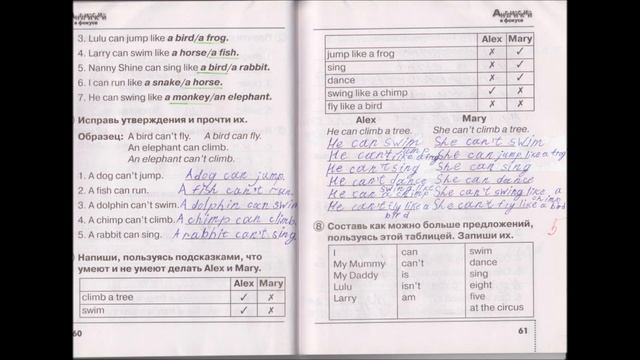 3. Lulu can jump like a bird/a frog.
4. Larry can swim like a horse/a fish.
5. Nanny Shine can sing like a bird/a rabbit.
6. I can run like a snake/a horse.
7. He can swing like a monkey/an elephant.
Исправь утверждения и прочти их.
Образец: A bird can't fly. A bird can fly.
An elephant can climb.
An elephant can't climb.
1. A dog can't jump. A dog can jump.
2. A fish can run. A fish can't run.
3. A dolphin can't swim. A dolphin can swim
4. A chimp can't climb. A chimp can climb.
5. A rabbit can sing. A rabbit can't sing.
Напиши, пользуясь подсказками, что
умеют и не умеют делать Alex и Mary.
Alex Mary
climb a tree ✓ ✗
swim ✓ ✗
60
в фокусе
Alex Mary
jump like a frog ✗ ✓
sing ✗ ✓
dance ✗ ✓
swing like a chimp ✓ ✗
fly like a bird ✗ ✗
Alex Mary
He can climb a tree. She can't climb a tree.
He can swim She can't swim.
He can't jump like a frog She can jump like a frog
He can't sing She can sing
He can't dance She can dance
He can swing like a chimp She can't swing like a chimp
He can't fly like a bird She can't fly like a bird
5
8 Составь как можно больше предложений,
пользуясь этой таблицей. Запиши их.
I can swim
My Mummy can't dance
My Daddy is sing
Lulu isn't eight
Larry am five
at the circus
61